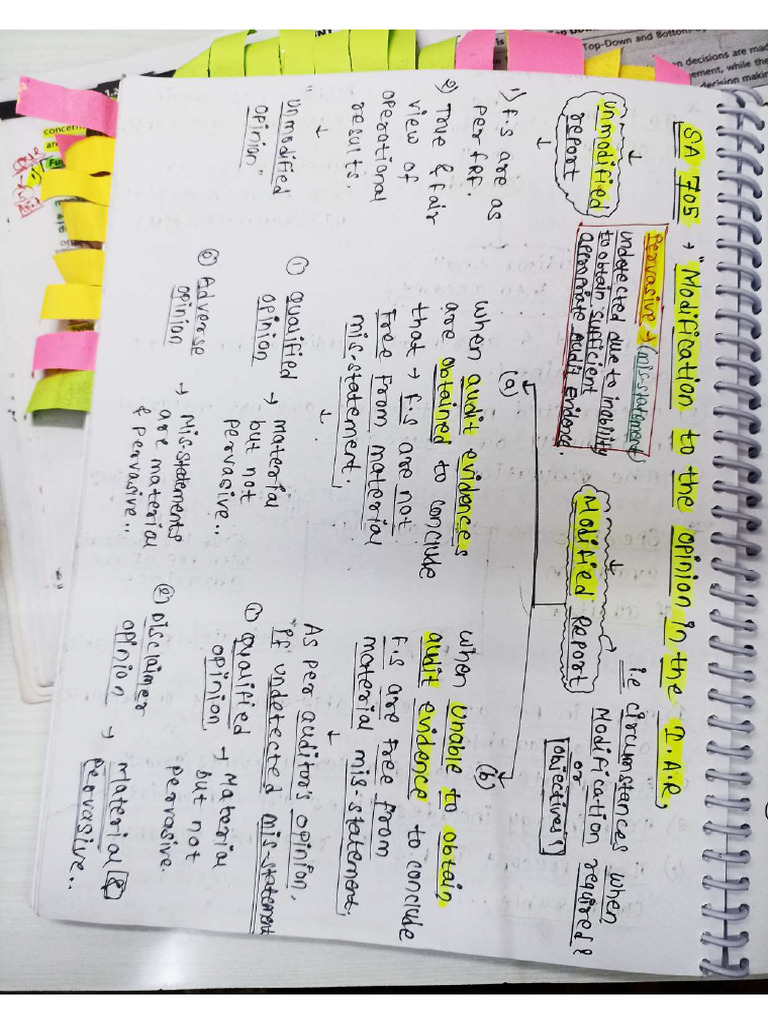 SA 705 → "Modification to the opinion in the I.A.R,
Unmodified
report
Pervasive → (mis-statement)
undetected due to inability
to obtain sufficient
appropriate Audit Evidence.
Modified Report
i.e circumstances when
Modification required &
or
Objectives"!
1) F.S are as
per FRF.
2) True & fair
view of
operational
results.
"Unmodified
opinion"
(a)
when audit evidences
are obtained to conclude
that → F.S are not
Free From material
mis-statement.
① Qualified
opinion → material
but not
pervasive..
② Adverse
opinion → Mis-statements
are material
& pervasive..
(b)
when Unable to obtain
audit evidence to conclude
F.S are free from
material mis-statement,
As per auditor's opinion,
"If undetected mis-statement
① Qualified
opinion → Material
but not
Pervasive.
② Disclaimer
opinion → Material &
Pervasive..
Top-Down and Bottom-
decisions are mad
ement, while the
decision makin
1.2
concer